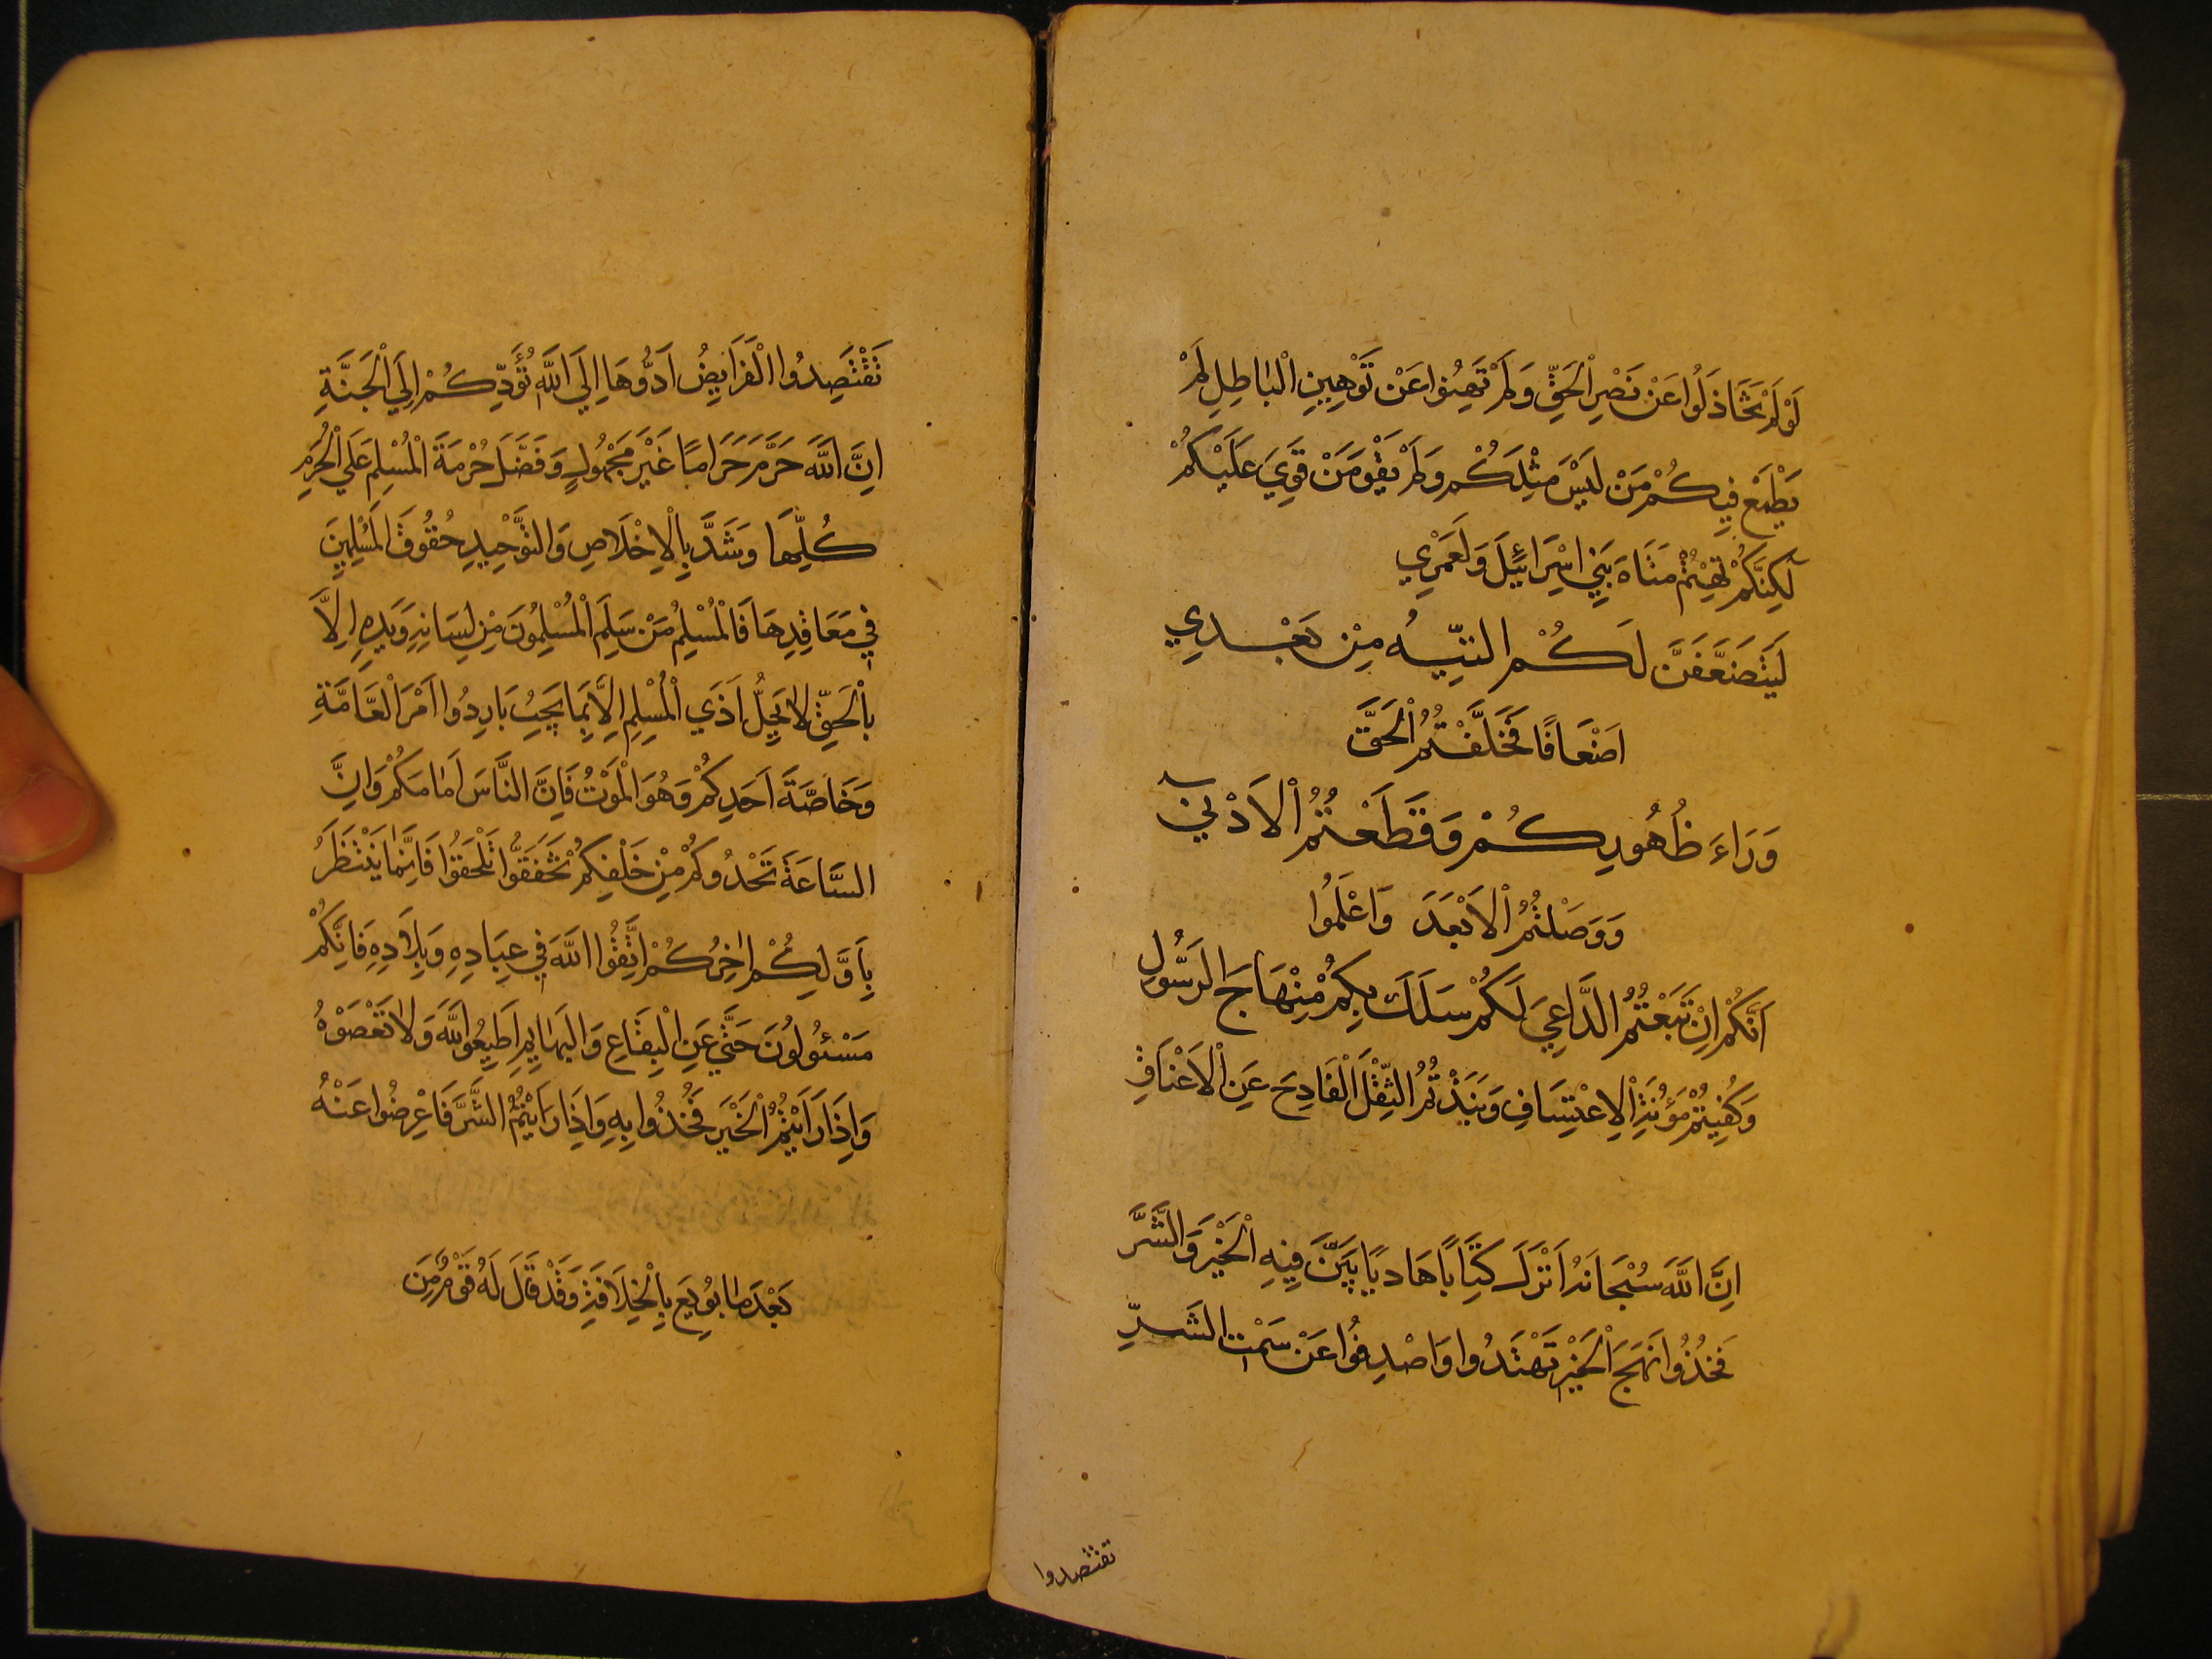 لَوْ لَمْ تَتَخَاذَلُوا عَنْ نَصْرِ الْحَقِّ وَلَمْ تَهِنُوا عَنْ تَوْهِينِ الْبَاطِلِ لَمْ
يَطْمَعْ فِيكُمْ مَنْ لَيْسَ مِثْلَكُمْ وَلَمْ يَقْوَ مَنْ قَوِيَ عَلَيْكُمْ
لٰكِنَّكُمْ تِهْتُمْ مَتَاهَ بَنِي اِسْرَائِيلَ وَلَعَمْرِي
لَيُضَعَّفَنَّ لَكُمُ التِّيهُ مِنْ بَعْدِي
اَضْعَافًا خَلَّفْتُمُ الْحَقَّ
وَرَاءَ ظُهُورِكُمْ وَقَطَعْتُمُ الْاَدْنٰي
وَوَصَلْتُمُ الْاَبْعَدَ وَاعْلَمُوا
اَنَّكُمْ اِنْ تَبَعْتُمُ الدَّاعِيَ لَكُمْ سَلَكَ بِكُمْ مِنْهَاجَ الرَّسُولِ
وَكُفِيتُمْ مَؤُنَةَ الْاِعْتِسَافِ وَنَبَذْتُمُ الثِّقْلَ الْفَادِحَ عَنِ الْاَعْنَاقِ
اِنَّ اللّٰهَ سُبْحَانَهُ اَنْزَلَ كِتَابًا هَادِيًا بَيَّنَ فِيهِ الْخَيْرَ وَالشَّرَّ
فَخُذُوا نَهْجَ الْخَيْرِ تَهْتَدُوا وَاصْدِفُوا عَنْ سَمْتِ الشَّرِّ
تقتصدوا
تَقْتَصِدُوا الْفَرَايِضَ اَدُّوهَا اِلَي اللّٰهِ تُؤَدِّكُمْ اِلَي الْجَنَّةِ
اِنَّ اللّٰهَ حَرَّمَ حَرَامًا غَيْرَ مَجْهُولٍ وَفَضَّلَ حُرْمَةَ الْمُسْلِمِ عَلَي الْحُرَمِ
كُلِّهَا وَشَدَّ بِالْاِخْلَاصِ وَالتَّوْحِيدِ حُقُوقَ الْمُسْلِمِينَ
فِي مَعَاقِدِهَا فَالْمُسْلِمُ مَنْ سَلِمَ الْمُسْلِمُونَ مِنْ لِسَانِهِ وَيَدِهِ اِلَّا
بِالْحَقِّ لَا يَحِلُّ اَذَي الْمُسْلِمِ اِلَّا بِمَا يَجِبُ بَادِرُوا اَمْرَ الْعَامَّةِ
وَخَاصَّةَ اَحَدِكُمْ وَهُوَ الْمَوْتُ فَاِنَّ النَّاسَ اَمَامَكُمْ وَاِنَّ
السَّاعَةَ تَحْدُوكُمْ مِنْ خَلْفِكُمْ تَخَفَّفُوا تَلْحَقُوا فَاِنَّمَا يُنْتَظَرُ
بِاَوَّلِكُمْ اٰخِرُكُمْ اِتَّقُوا اللّٰهَ فِي عِبَادِهِ وَبِلَادِهِ فَاِنَّكُمْ
مَسْئُولُونَ حَتَّي عَنِ الْبِقَاعِ وَالْبَهَايِمِ اَطِيعُوا اللّٰهَ وَلَا تَعْصَوْهُ
وَاِذَا رَاَيْتُمُ الْخَيْرَ فَخُذُوا بِهِ وَاِذَا رَاَيْتُمُ الشَّرَّ فَاَعْرِضُوا عَنْهُ
بَعْدَ مَا بُويِعَ بِالْخِلَافَةِ وَقَدْ قَالَ لَهُ قَوْمٌ مِنَ